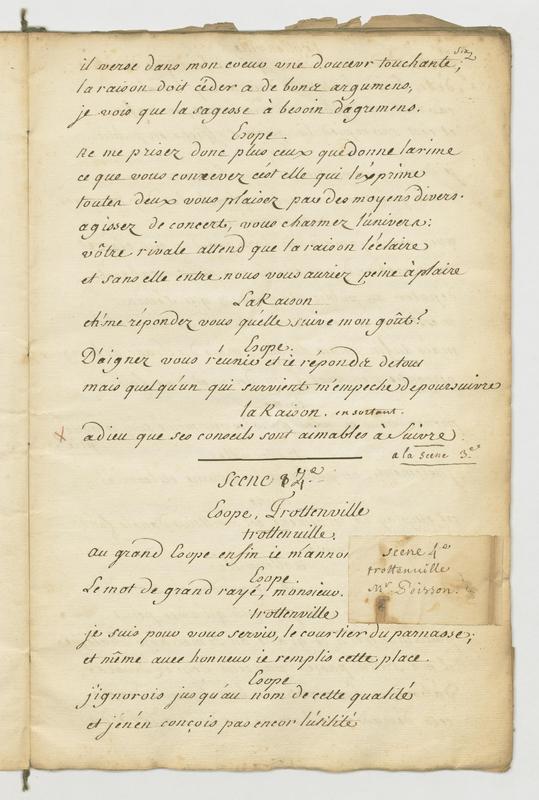 six
il verse dans mon coeur vne douceur touchante;
la raison doit céder a de bons argumens,
je vois que la sagesse à besoin d'agremens.
Esope
ne me prisez donc plus ceux que donne la rime
ce que vous concevez c'est elle qui l'exprime
toutes deux vous plaisez par des moyens divers.
agissez de concert, vous charmez l'univers;
vôtre rivale attend que la raison l'éclaire
et sans elle entre nous vous auriez peine à plaire
La Raison
eh! me répondez vous qu'elle suive mon goût?
Esope.
Daignez vous réunir et ie réponds de tout
mais quelqu'un qui survient m'empeche de poursuivre
la Raison. en sortant.
adieu que ses conseils sont aimables à Suivre
a la scene 3e
Scene 4e
Esope, Trottenville
trottenville.
au grand Esope enfin ie m'annon
Esope.
Le mot de grand rayé, monsieur.
trottenville
je suis pour vous servir, le courtier du parnasse;
et même avec honneur ie remplis cette place.
Esope
j'ignorois jusqu'au nom de cette qualité
et j'en'en conçois pas encor l'utilité
scene 4e
trottenville
Mr Poisson.